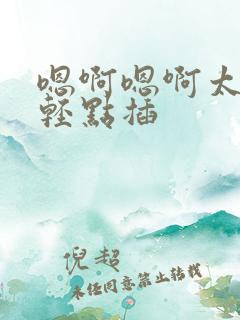 嗯啊嗯啊太
輕點插
倪超
未任同意禁止转载